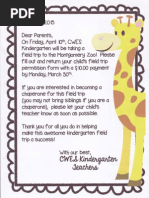 Dear Parents,
On Friday, April 10th, CWES
Kindergarten will be taking a
field trip to the Montgomery Zoo! Please
fill out and return your child's field trip
permission form with a $10.00 payment
by Monday, March 30th.
If you are interested in becoming a
chaperone for the field trip
(you may not bring siblings if you are a
chaperone), please let your child's
teacher know as soon as possible.
Thank you for all you do in helping
make this awesome kindergarten field
trip a success!
With our best,
CWES Kindergarten
Teachers